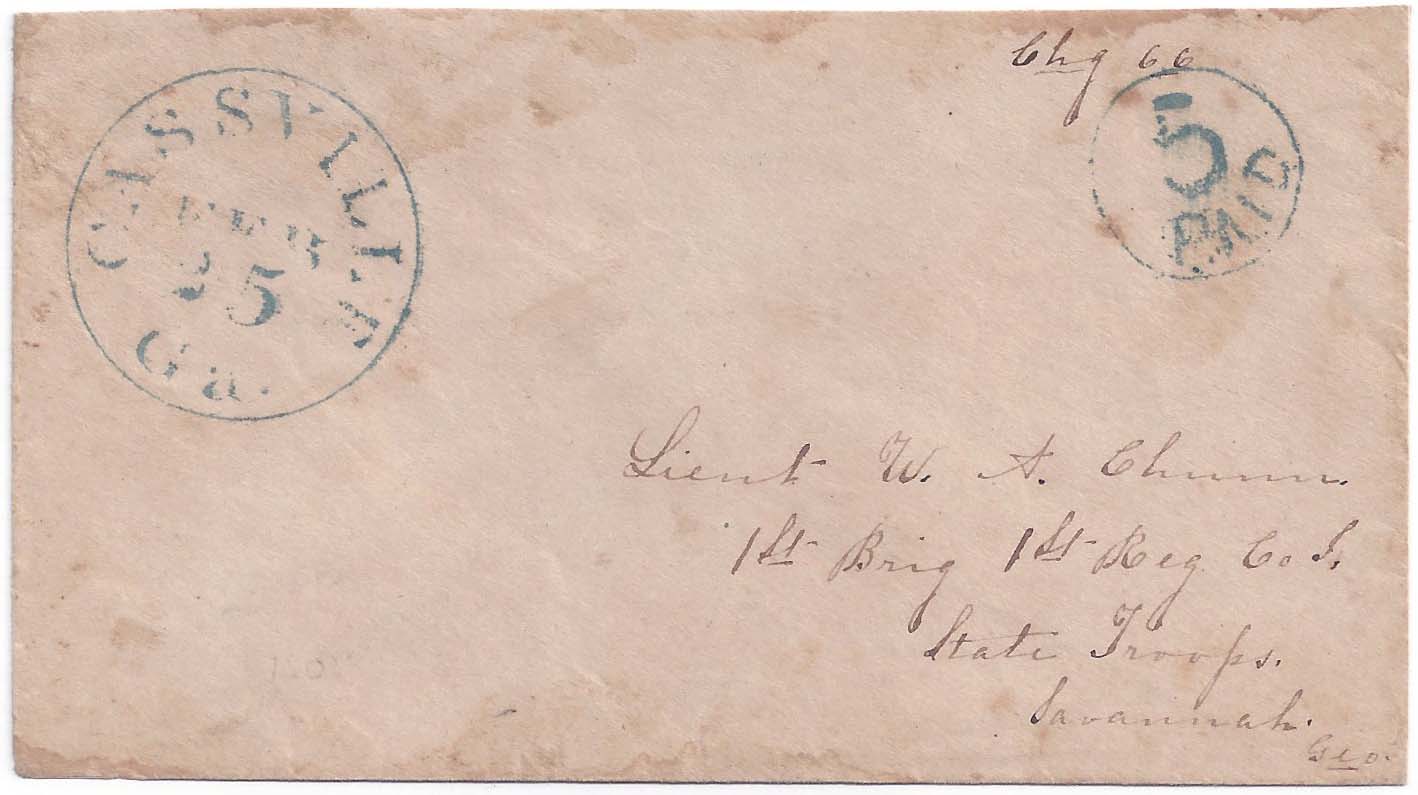 Chg 66
CASSVILLE
FEB
25
Ga.
5
PAID
Lieut W. A. Chunn.
1st Brig 1st Reg Co I.
State Troops.
Savannah.
Geo.